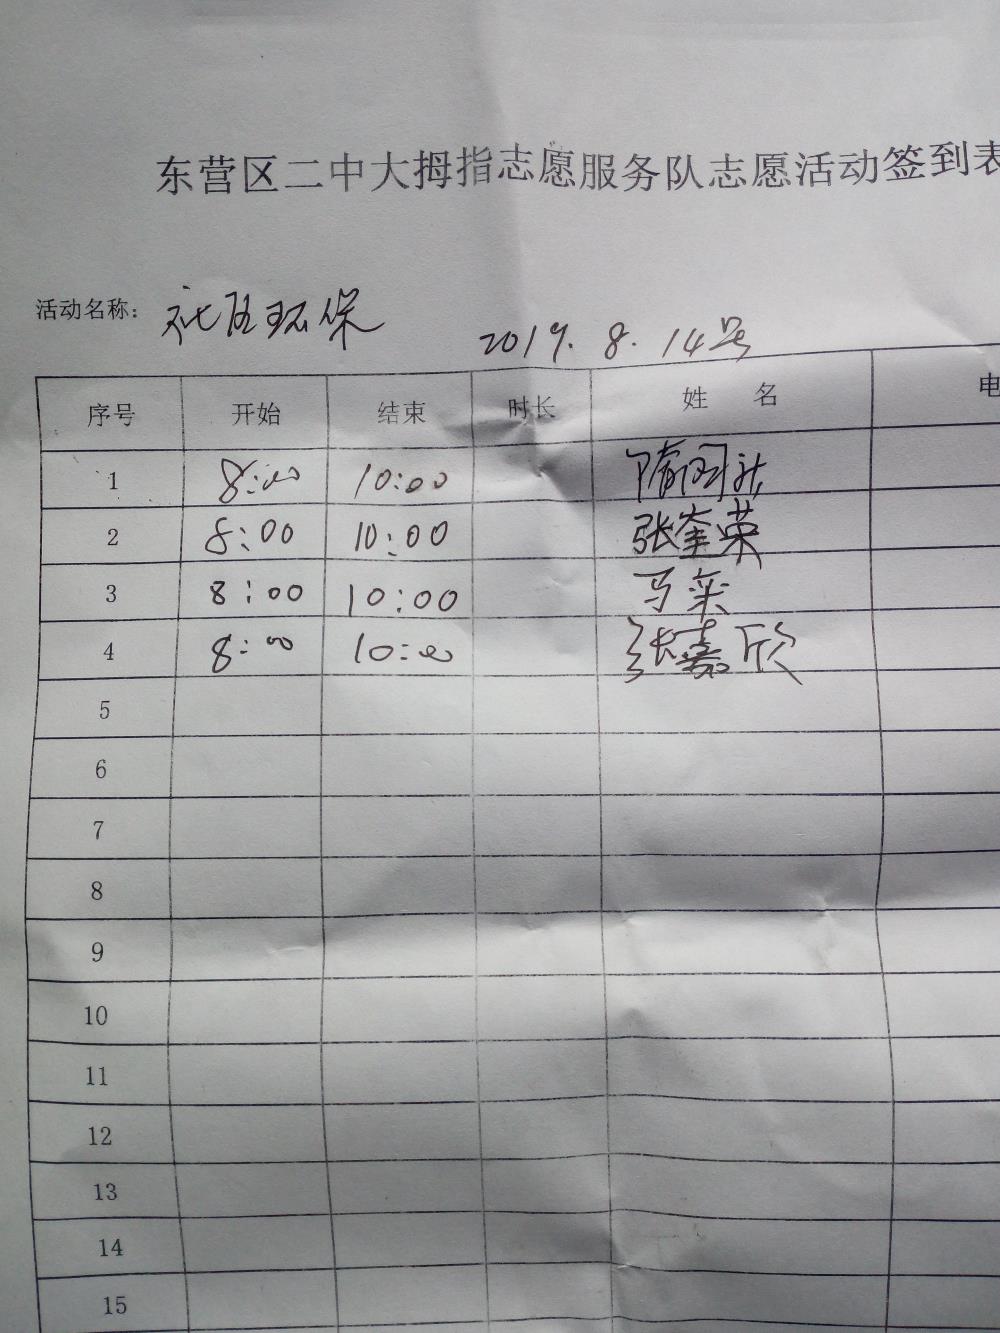 东营区二中大拇指志愿服务队志愿活动签到表
活动名称: 社区环保 2019.8.14号
序号 开始 结束 时长 姓 名 电
1 8:00 10:00
2 8:00 10:00 张奎英
3 8:00 10:00 马
4 8:00 10:00 张嘉欣
5
6
7
8
9
10
11
12
13
14
15